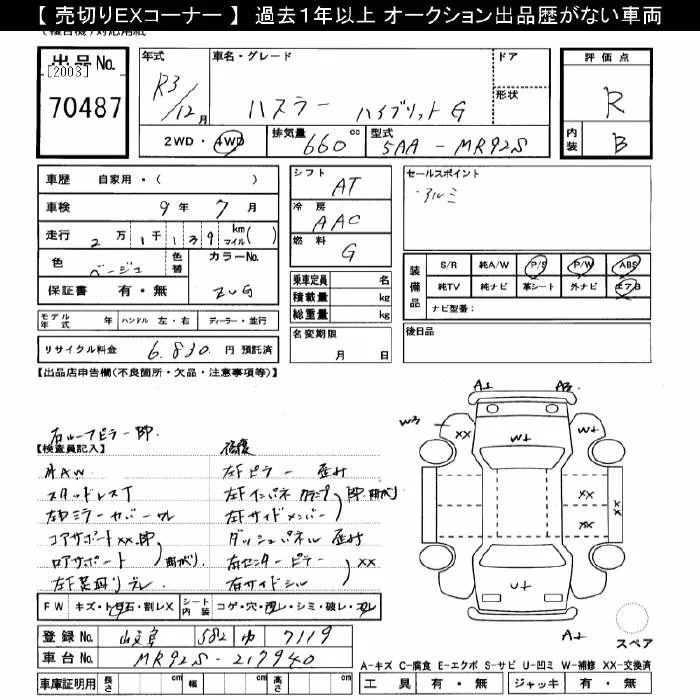 【 売切りEXコーナー 】 過去1年以上 オークション出品歴がない車両
出品No.
[2003]
70487
年式
R3/12月
車名・グレード
ハスラー ハイブリットG
ドア
形状
2WD・4WD
排気量 660 cc
型式 5AA-MR92S
評価点
R
内装 B
車歴 自家用・( )
車検 9年 7月
走行 2万1千139 km マイル( )
色 ベージュ
色替
カラーNo.
ZVG
保証書 有・無
モデル年式 年 ハンドル 左・右 ディーラー・並行
リサイクル料金 6,830 円 預託済
シフト AT
冷房 AAC
燃料 G
乗車定員 名
積載量 kg
総重量 kg
名変期限 月 日
セールスポイント
・アルミ
装備品
S/R 純A/W P/S P/W ABS
純TV 純ナビ 革シート 外ナビ エアB
ナビ型番:
後日品
【出品店申告欄(不良箇所・欠品・注意事項等)】
右ルーフピラー 即
【検査員記入】
社AW
スタッドレスT
コアサポート xx 即
ロアサポート 曲がり
修復
左Fピラー 歪み
左Fサイドメンバー
ダッシュパネル 歪み
右センターピラー xx
右サイドシル
FW キズ・ト石・割レX シート内装 コゲ・穴・汚レ・シミ・破レ・スレ
登録No. 582 ゆ 7119
車台No. MR92S-217940
車庫証明用 長さ cm 幅 cm 高さ cm
A1 A3
W3 XX W1 W1
XX XX XX
U1
A1
スペア
A-キズ C-腐食 E-エクボ S-サビ U-凹ミ W-補修 XX-交換済
工具 有・無 ジャッキ 有・無